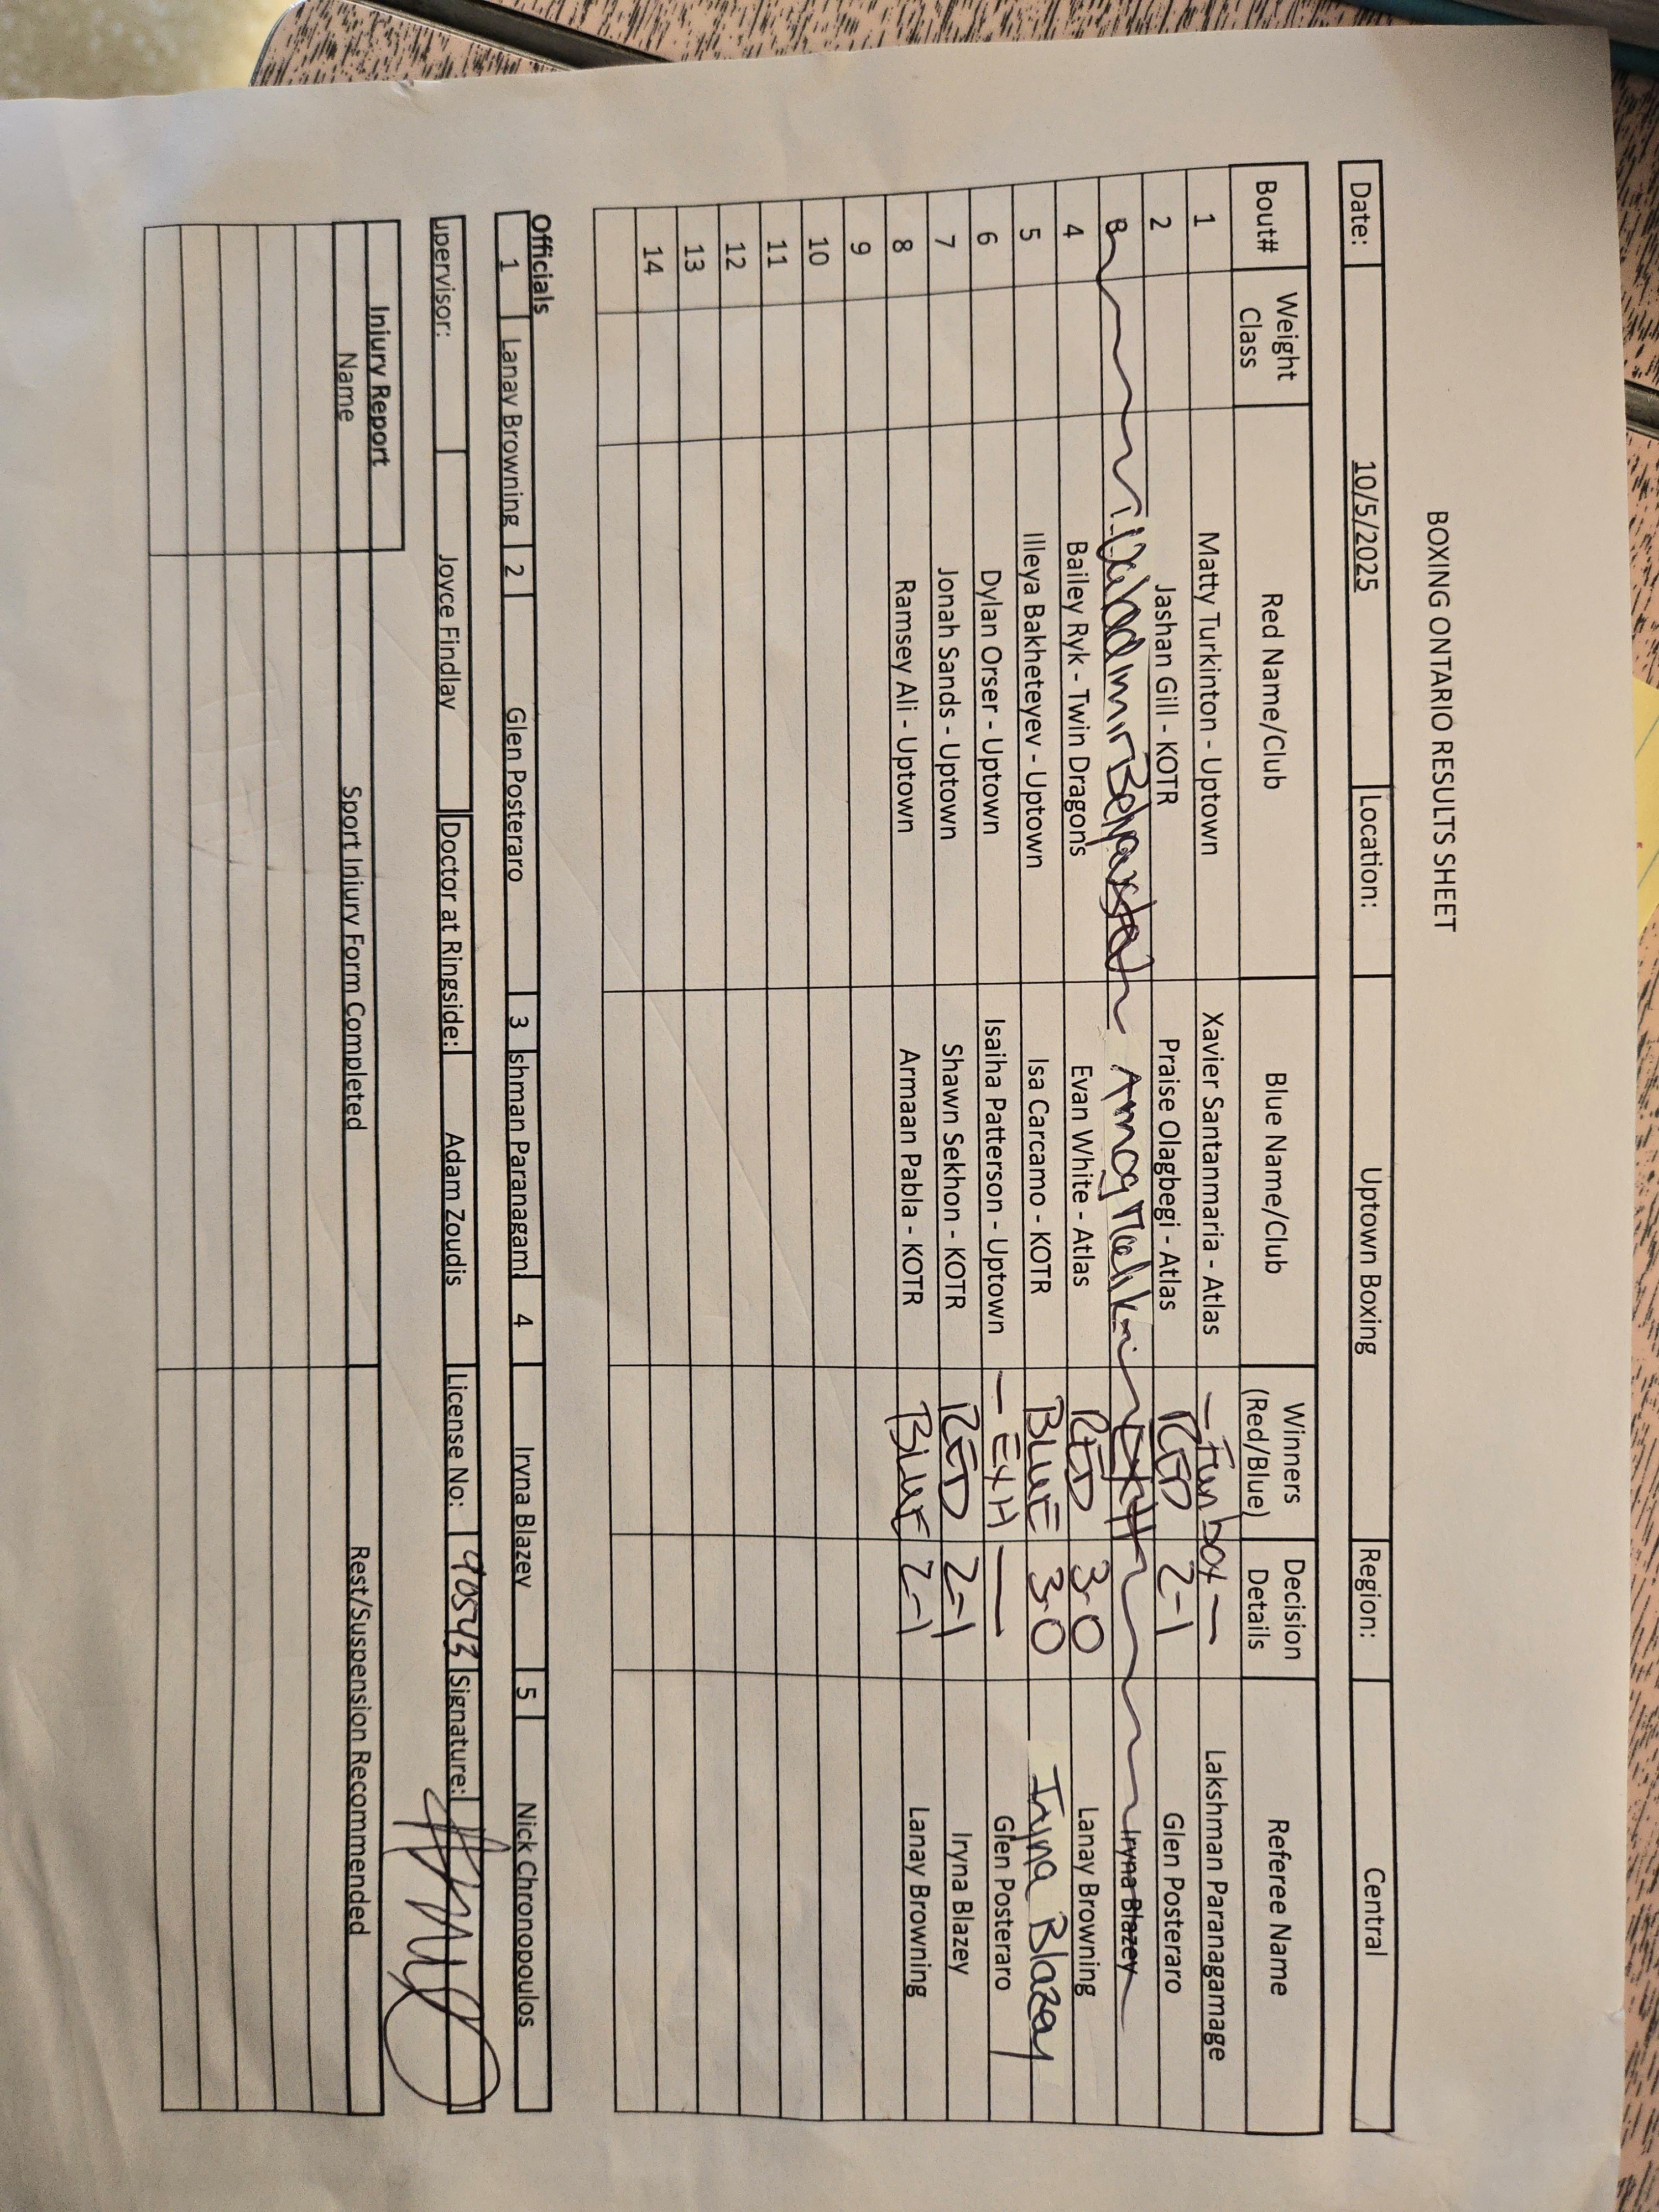 BOXING ONTARIO RESULTS SHEET
Date: 10/5/2025 Location: Uptown Boxing Region: Central
Bout# Weight Class Red Name/Club Blue Name/Club Winners (Red/Blue) Decision Details Referee Name
1 Matty Turkinton - Uptown Xavier Santanmaria - Atlas - Fun box - Lakshman Paranagamage
2 Jashan Gill - KOTR Praise Olagbegi - Atlas RED 2-1 Glen Posteraro
3 EXH Iryna Blazey
4 Bailey Ryk - Twin Dragons Evan White - Atlas RED 3-0 Lanay Browning
5 Illeya Bakheteyev - Uptown Isa Carcamo - KOTR BLUE 3-0 Iryna Blazey
6 Dylan Orser - Uptown Isaiha Patterson - Uptown - EXH - Glen Posteraro
7 Jonah Sands - Uptown Shawn Sekhon - KOTR RED 2-1 Iryna Blazey
8 Ramsey Ali - Uptown Armaan Pabla - KOTR BLUE 2-1 Lanay Browning
9
10
11
12
13
14
Officials
1 Lanay Browning 2 Glen Posteraro 3 shman Paranagam 4 Iryna Blazey 5 Nick Chronopoulos
upervisor: Joyce Findlay Doctor at Ringside: Adam Zoudis License No: 90543 Signature:
Injury Report
Name Sport Injury Form Completed Rest/Suspension Recommended